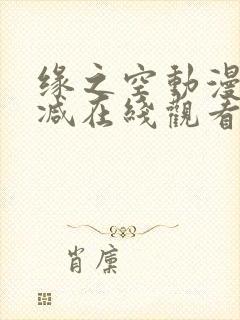 缘之空動漫
减在綫觀看
肖廪